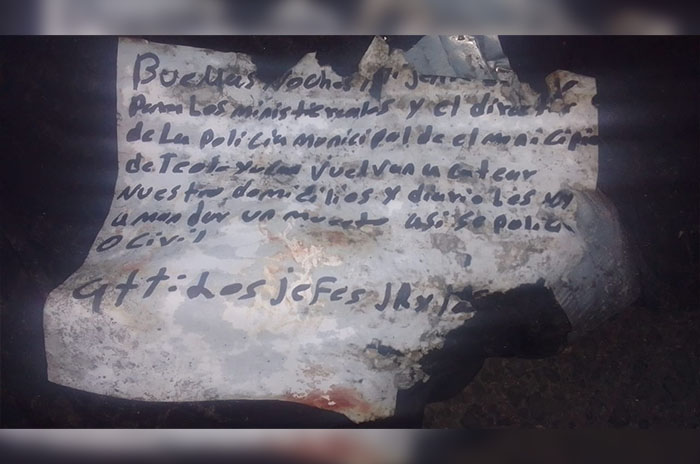 Buenas Noches
Para Los ministeriales y el director
de La Policia municipal de el municipio
de vuelvan a catear
Nuestro domicilios y diario Les
a mandar un muerto asi se polici
O Civil
att: Los jefes